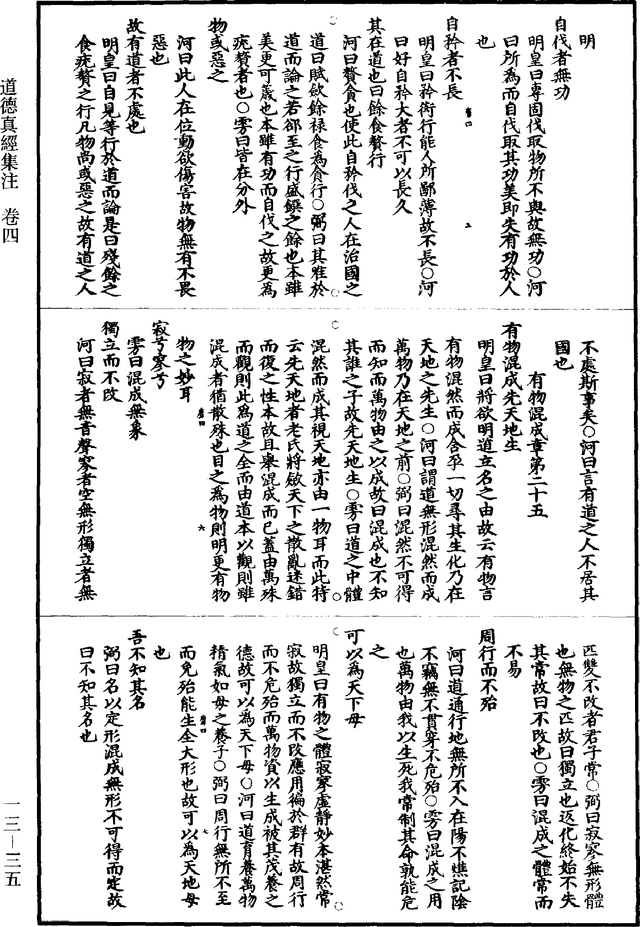 道德真經集注 卷四
一三—三五
明
自伐者無功
明皇曰專固伐取物所不與故無功○河
曰所為而自伐取其功美即失有功於人
也
自矜者不長
明皇曰矜衒行能人所鄙薄故不長○河
曰好自矜大者不可以長久
其在道也曰餘食贅行
河曰贅貪也使此自矜伐之人在治國之
道曰賦斂餘祿食為貪行○弼曰其唯於
道而論之若郤至之行盛饌之餘也本雖
美更可薉也本雖有功而自伐之故更為
疣贅者也○雱曰皆在分外
物或惡之
河曰此人在位動欲傷害故物無有不畏
惡也
故有道者不處也
明皇曰自見等行於道而論是曰殘餘之
食疣贅之行凡物尚或惡之故有道之人
不處斯事矣○河曰言有道之人不居其
國也
有物混成章第二十五
有物混成先天地生
明皇曰將欲明道立名之由故云有物言
有物混然而成含孕一切尋其生化乃在
天地之先生○河曰謂道無形混然而成
萬物乃在天地之前○弼曰混然不可得
而知而萬物由之以成故曰混成也不知
其誰之子故先天地生○雱曰道之中體
混然而成其視天地亦由一物耳而此特
云先天地者老氏將斂天下之散亂迷錯
而復之性本故且舉混成而已蓋由萬殊
而觀則此為道之全而由道本以觀則雖
混成者猶散殊也目之為物則明更有物
物之妙耳
寂兮寥兮
雱曰混成無象
獨立而不改
河曰寂者無音聲寥者空無形獨立者無
匹雙不改者君子常○弼曰寂寥無形體
也無物之匹故曰獨立也返化終始不失
其常故曰不改也○雱曰混成之體常而
不易
周行而不殆
河曰道通行地無所不入在陽不燋託陰
不竊無不貫穿不危殆○雱曰混成之用
也萬物由我以生死我常制其命孰能危
之
可以為天下母
明皇曰有物之體寂寥虛靜妙本湛然常
寂故獨立而不改應用徧於群有故周行
而不危殆而萬物資以生成被其茂養之
德故可以為天下母○河曰道育養萬物
精氣如母之養子○弼曰周行無所不至
而免殆能生全大形也故可以為天地母
也
吾不知其名
弼曰名以定形混成無形不可得而定故
曰不知其名也